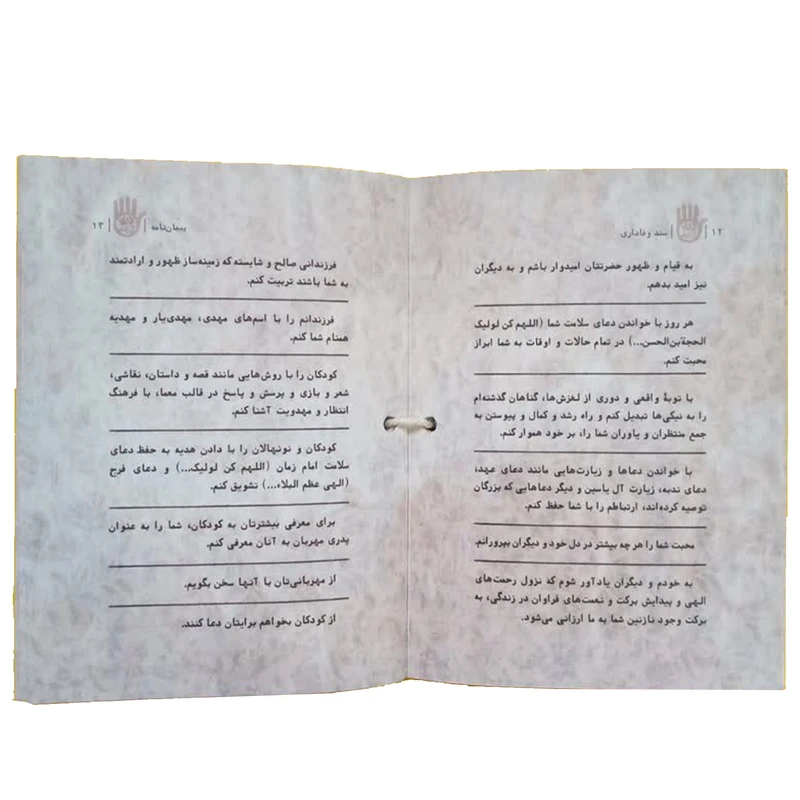 ۱۲ | سند وفاداری
به قیام و ظهور حضرتتان امیدوار باشم و به دیگران
نیز امید بدهم.
هر روز با خواندن دعای سلامت شما (اللهم کن لولیک
الحجةبن‌الحسن...) در تمام حالات و اوقات به شما ابراز
محبت کنم.
با توبهٔ واقعی و دوری از لغزش‌ها، گناهان گذشته‌ام
را به نیکی‌ها تبدیل کنم و راه رشد و کمال و پیوستن به
جمع منتظران و یاوران شما را، بر خود هموار کنم.
با خواندن دعاها و زیارت‌هایی مانند دعای عهد،
دعای ندبه، زیارت آل یاسین و دیگر دعاهایی که بزرگان
توصیه کرده‌اند، ارتباطم را با شما حفظ کنم.
محبت شما را هر چه بیشتر در دل خود و دیگران بپرورانم.
به خودم و دیگران یادآور شوم که نزول رحمت‌های
الهی و پیدایش برکت و نعمت‌های فراوان در زندگی، به
برکت وجود نازنین شما به ما ارزانی می‌شود.
پیمان‌نامه | ۱۳
فرزندانی صالح و شایسته که زمینه‌ساز ظهور و ارادتمند
به شما باشند تربیت کنم.
فرزندانم را با اسم‌های مهدی، مهدی‌یار و مهدیه
همنام شما کنم.
کودکان را با روش‌هایی مانند قصه و داستان، نقاشی،
شعر و بازی و پرسش و پاسخ در قالب معما، با فرهنگ
انتظار و مهدویت آشنا کنم.
کودکان و نونهالان را با دادن هدیه به حفظ دعای
سلامت امام زمان (اللهم کن لولیک...) و دعای فرج
(الهی عظم البلاء...) تشویق کنم.
برای معرفی بیشترتان به کودکان، شما را به عنوان
پدری مهربان به آنان معرفی کنم.
از مهربانی‌تان با آنها سخن بگویم.
از کودکان بخواهم برایتان دعا کنند.